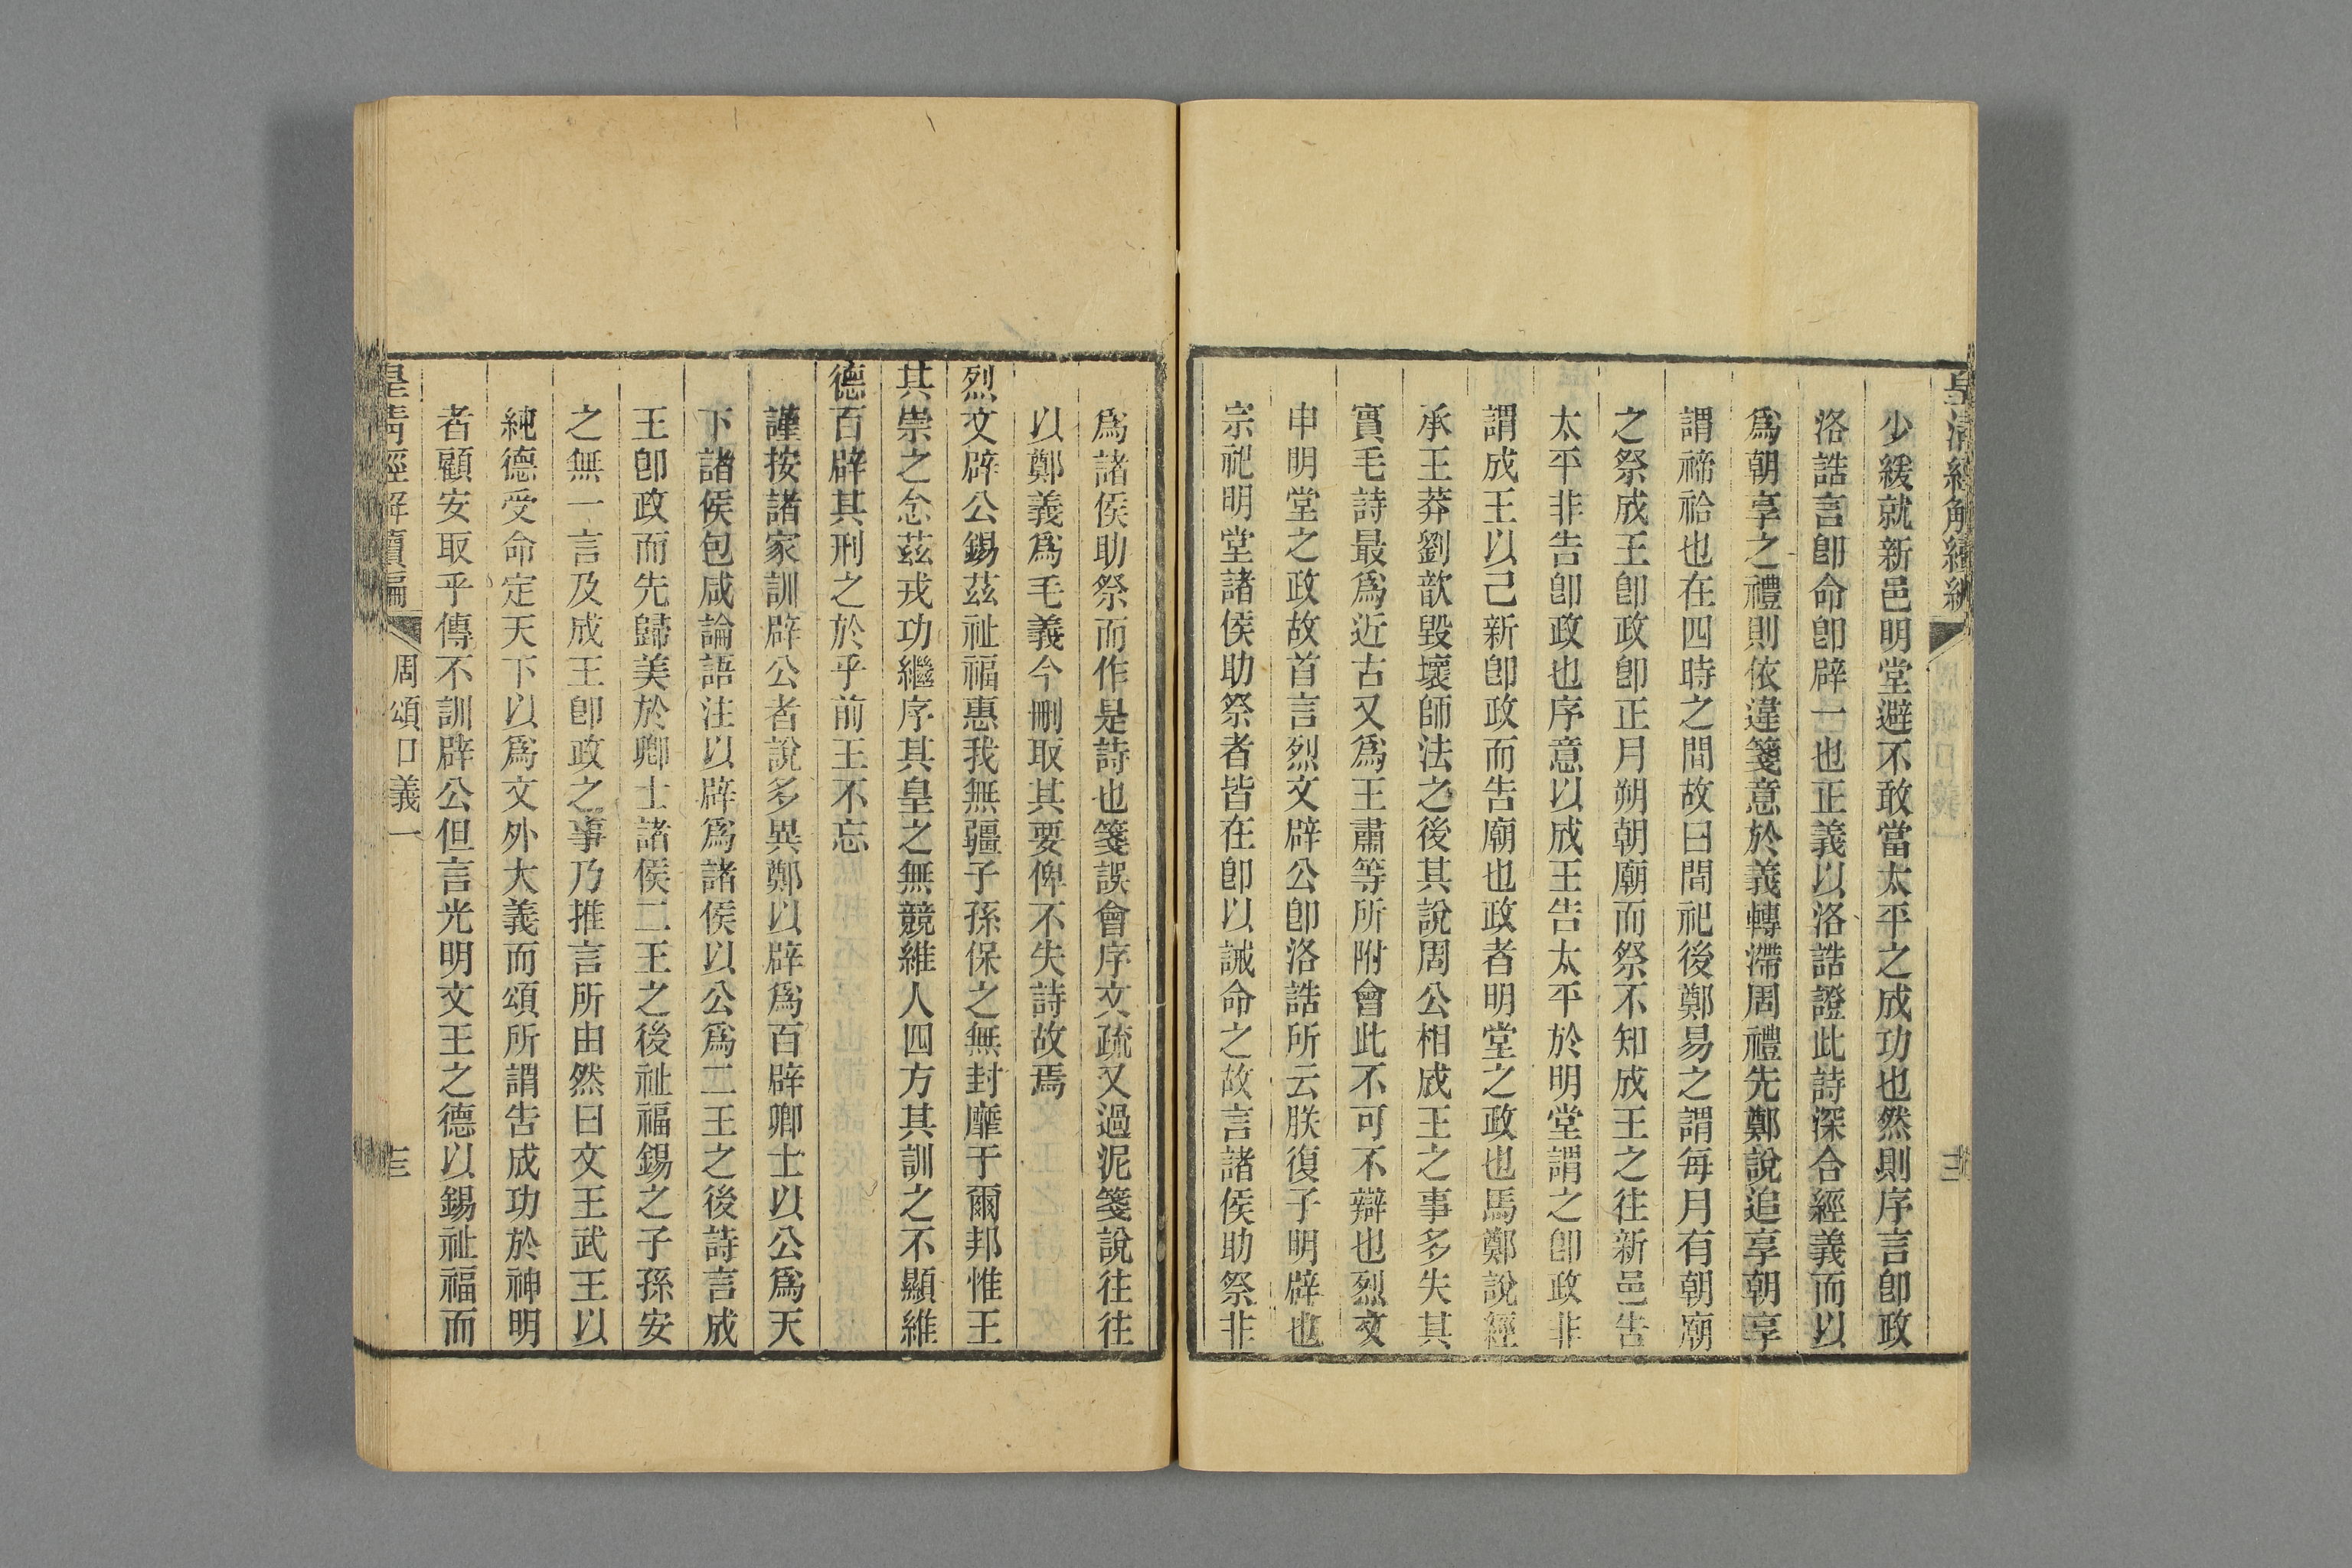 皇清經解續編
少緩就新邑明堂避不敢當太平之成功也然則序言卽政
洛誥言卽命卽辟一也正義以洛誥證此詩深合經義而以
爲朝享之禮則依違箋意於義轉滯周禮先鄭說追享朝享
謂禘祫也在四時之間故曰間祀後鄭易之謂每月有朝廟
之祭成王卽政卽正月朔朝廟而祭不知成王之往新邑告
太平非告卽政也序意以成王告太平於明堂謂之卽政非
謂成王以己新卽政而告廟也政者明堂之政也馬鄭說經
承王莽劉歆毀壞師法之後其說周公相成王之事多失其
實毛詩最爲近古又爲王肅等所附會此不可不辯也烈文
申明堂之政故首言烈文辟公卽洛誥所云朕復子明辟也
宗祀明堂諸侯助祭者皆在卽以誡命之故言諸侯助祭非
爲諸侯助祭而作是詩也箋誤會序文疏又過泥箋說往往
以鄭義爲毛義今刪取其要俾不失詩故焉
烈文辟公錫茲祉福惠我無疆子孫保之無封靡于爾邦惟王
其崇之念茲戎功繼序其皇之無競維人四方其訓之不顯維
德百辟其刑之於乎前王不忘
謹按諸家訓辟公者說多異鄭以辟爲百辟卿士以公爲天
下諸侯包咸論語注以辟爲諸侯以公爲二王之後詩言成
王卽政而先歸美於卿士諸侯二王之後祉福錫之子孫安
之無一言及成王卽政之事乃推言所由然曰文王武王以
純德受命定天下以爲文外大義而頌所謂告成功於神明
者顧安取乎傳不訓辟公但言光明文王之德以錫祉福而
皇清經解續編
周頌口義一
三